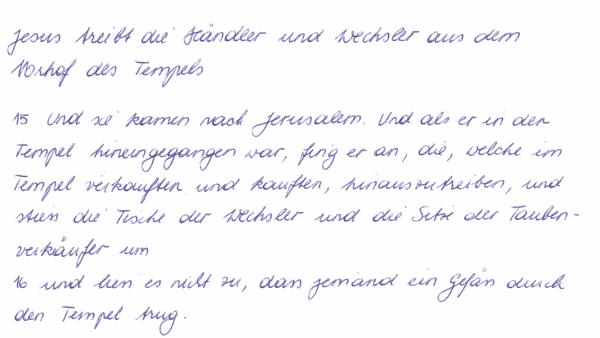 Jesus treibt die Händler und Wechsler aus dem
Vorhof des Tempels
15 Und sie kamen nach Jerusalem. Und als er in den
Tempel hineingegangen war, fing er an, die, welche im
Tempel verkauften und kauften, hinauszutreiben, und
stiess die Tische der Wechsler und die Sitze der Tauben-
verkäufer um
16 und liess es nicht zu, dass jemand ein Gefäss durch
den Tempel trug.